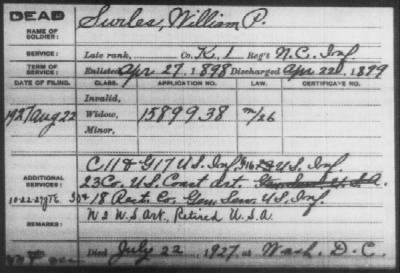 DEAD
NAME OF SOLDIER: Surles, William P.
SERVICE: Late rank, Co. K, 1 Reg't N.C. Inf.
TERM OF SERVICE: Enlisted Apr 27, 1898 Discharged Apr 22, 1899
DATE OF FILING. CLASS. APPLICATION NO. LAW. CERTIFICATE NO.
Invalid,
1927 Aug 22 Widow, 1589938 m/26
Minor,
C 11 & G 17 U.S. Inf. U.S. Inf
ADDITIONAL SERVICES: 23 Co. U.S. Coast Art. U.S.A.
10-22-27 & 18 Rect. Co. Gen. Serv. U.S. Inf.
REMARKS: U.S. Retired U.S.A.
Died July 22, 1927, at Wash. D.C.